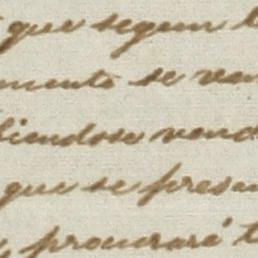 que segun t
mento se ven
iendose vend
que se presen
procuraré t